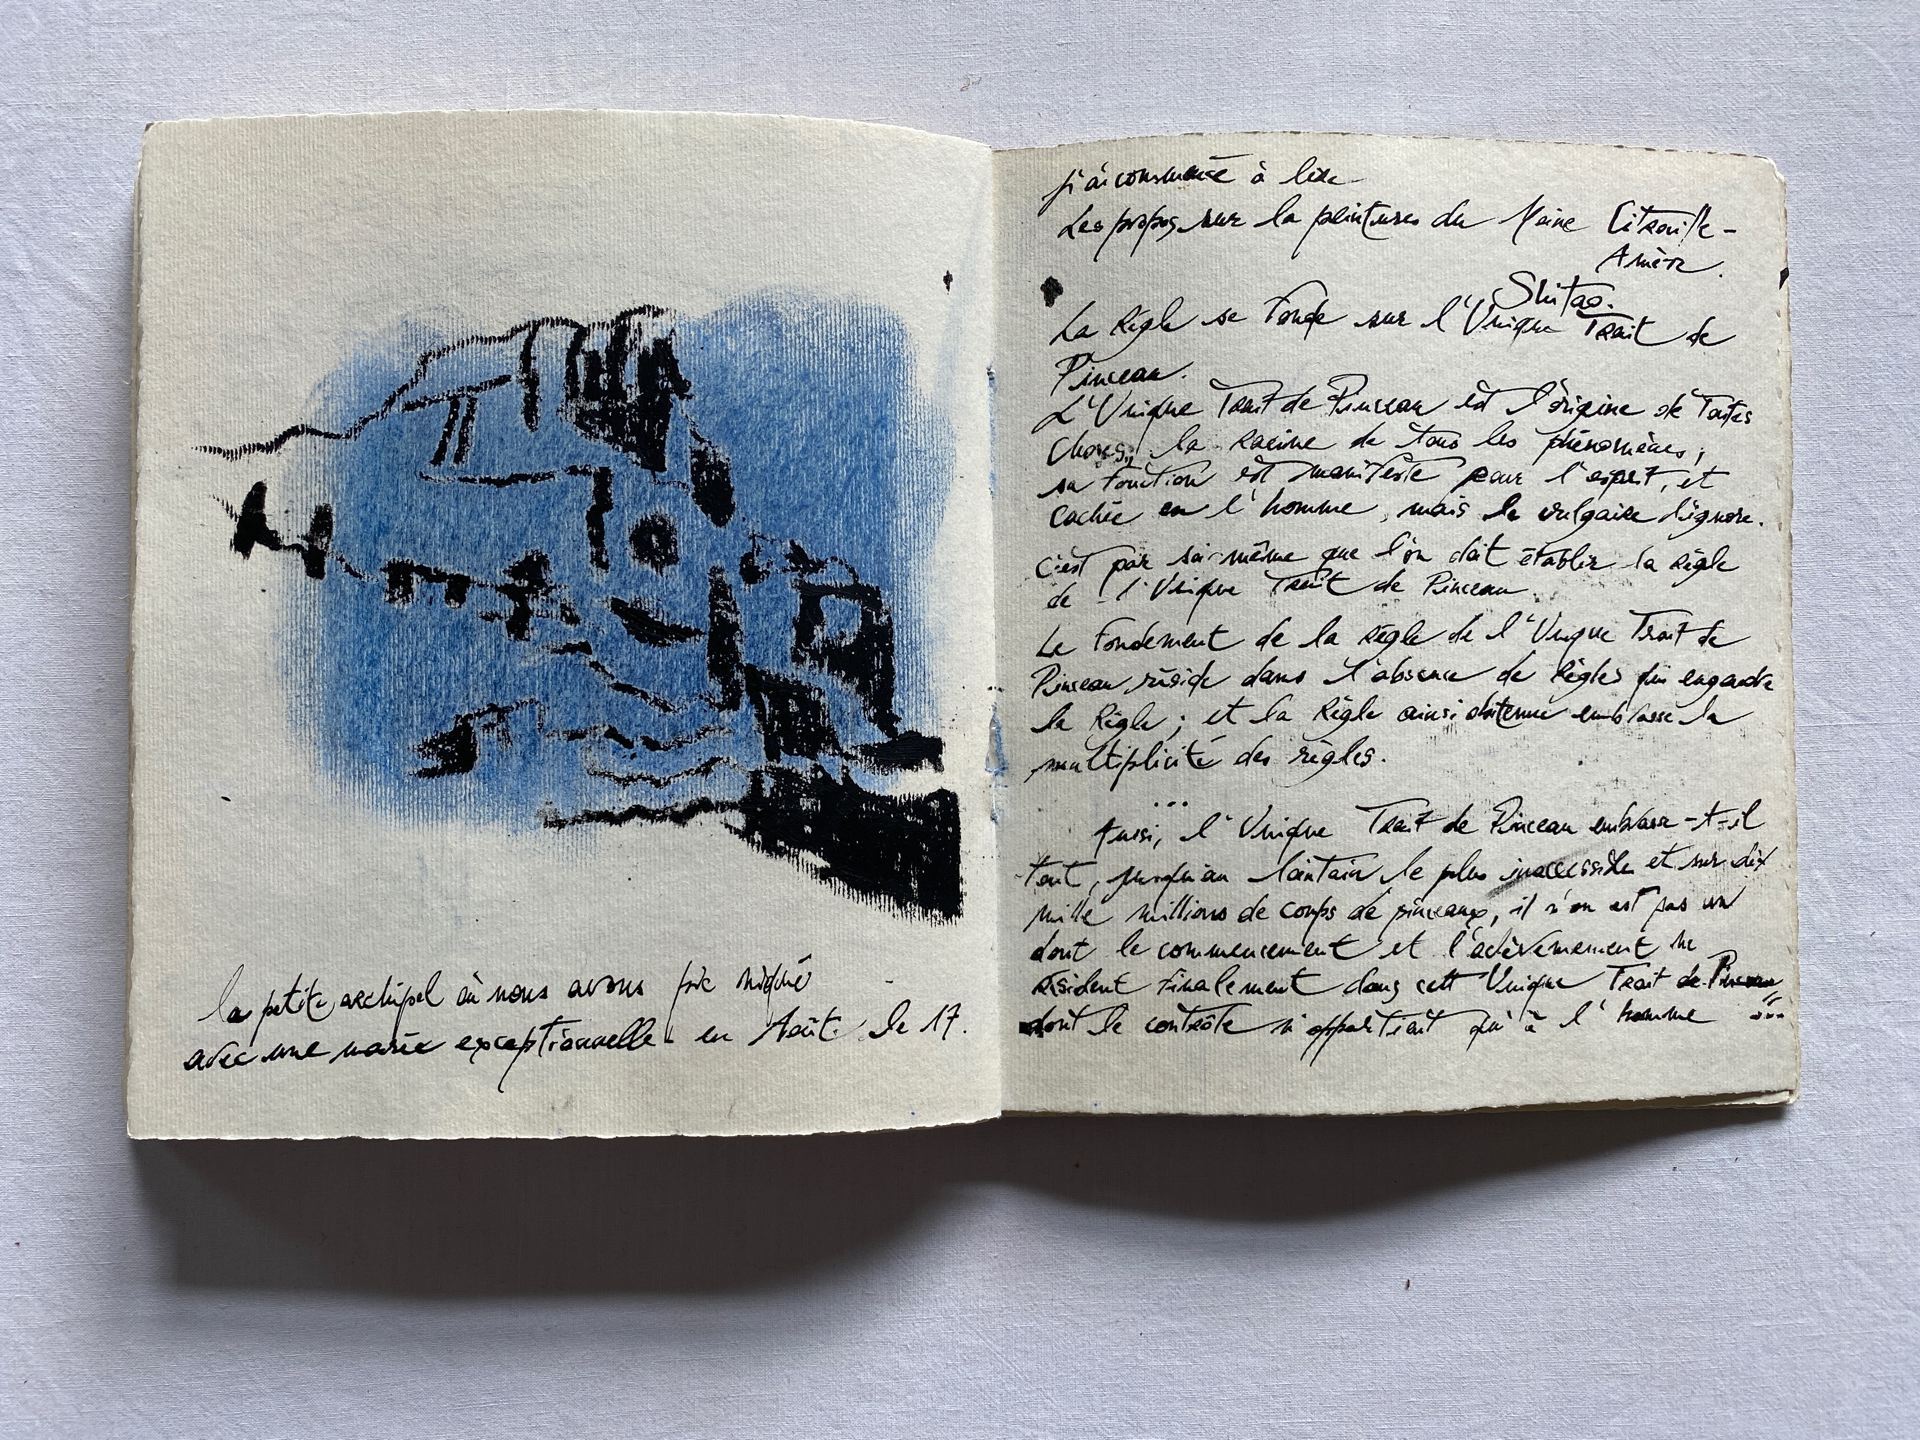 le petit archipel où nous avons pic niqué
avec une marée exceptionnelle en Août. le 17.
j'ai commencé à lire
Les propos sur la peintures du Moine Citrouille-
Amère.
Shitao.
La Règle se fonde sur l'Unique Trait de
Pinceau.
L'Unique Trait de Pinceau est l'origine de Toutes
choses, la racine de tous les phénomènes;
sa fonction est manifeste pour l'esprit, et
cachée en l'homme, mais le vulgaire l'ignore.
c'est par soi-même que l'on doit établir la règle
de l'Unique Trait de Pinceau.
Le Fondement de la règle de l'Unique Trait de
Pinceau réside dans l'absence de Règles qui engendre
la Règle; et la Règle ainsi obtenue embrasse la
multiplicité des règles.
...
Aussi, l'Unique Trait de Pinceau embrasse-t-il
tout, jusqu'au lointain le plus inaccessible et sur dix
mille millions de coups de pinceaux, il n'en est pas un
dont le commencement et l'achèvement ne
résident finalement dans cet Unique Trait de Pinceau
dont le contrôle n'appartient qu'à l'homme "...